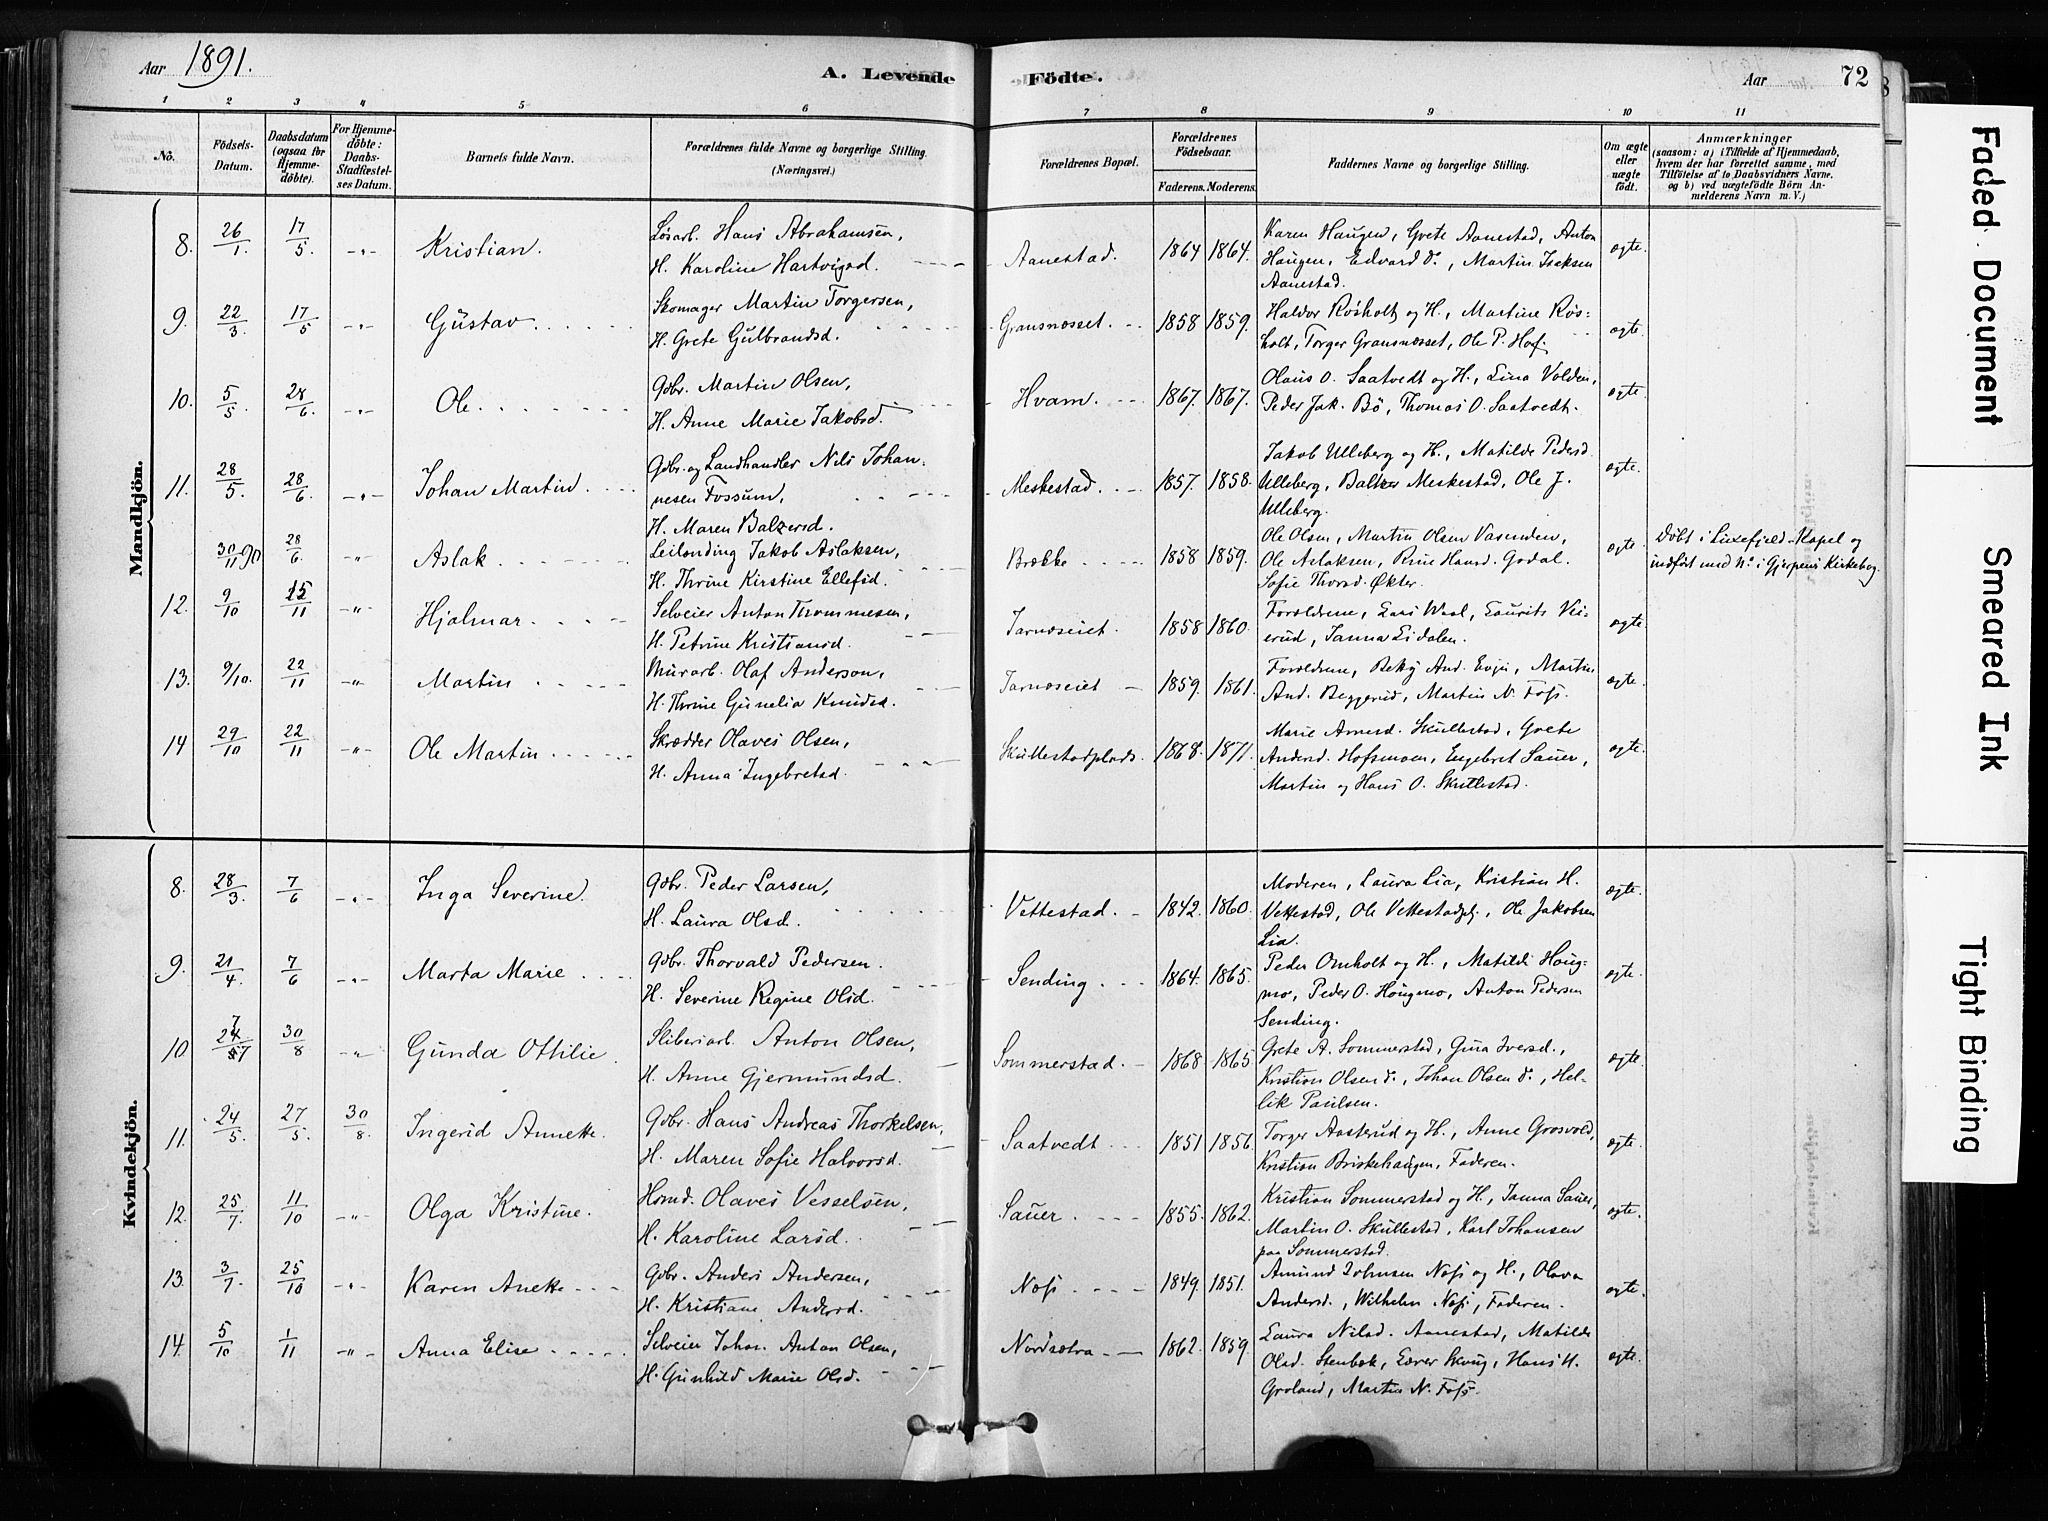 Aar 1891.
A. Levende Födte.
Aar 72
1 2 3 4 5 6 7 8 9 10 11
No.
Födsels-Datum.
Daabsdatum (ogsaa for Hjemme-döbte).
For Hjemme-döbte: Daabs-Stadfæstel-ses Datum.
Barnets fulde Navn.
Forældrenes fulde Navne og borgerlige Stilling. (Næringsvei.)
Forældrenes Bopæl.
Forældrenes Födselsaar.
Faderens. Moderens.
Faddernes Navne og borgerlige Stilling.
Om ægte eller uægte födt.
Anmærkninger
(saasom: a) i Tilfælde af Hjemmedaab,
hvem der har forrettet samme, med
Tilföielse af to Daabsvidners Navne.
og b) ved uægtefödte Börn An-
melderens Navn m. V.)
Mandkjön.
8. 26/1 17/5 -"- Kristian.
Løsarb. Hans Abrahamsen,
H. Karoline Hartvigsd.
Aanestad. 1864 1864.
Karen Haugen, Grete Aanestad, Anton
Haugen, Edvard do, Martin Isaksen
Aanestad.
ægte.
9. 22/3 17/5 -"- Gustav
Skomager Martin Torgersen,
H. Grete Gulbrandsd.
Gransnæsset. 1858 1859.
Haldor Røsholt og H., Martine Røs-
holt, Torger Gransnæsset, Ole P. Hof.
ægte.
10. 5/5 28/6 -"- Ole
Gdbr. Martin Olsen,
H. Anne Marie Jakobsd.
Hvam. 1867. 1867.
Olaus O. Saatvedt og H., Lina Volden,
Peder Jak. Bö, Thomas O. Saatvedt.
ægte.
11. 28/5 28/6 -"- Johan Martin
Gdbr. og Landhandler Nils Johan-
nesen Fossum,
H. Maren Balzersd.
Meskestad. 1857. 1858.
Jakob Ulleberg og H., Matilde Pedersd
Ulleberg, Balzer Meskestad, Ole J.
Ulleberg.
ægte.
30/11 90 28/6 -"- Aslak
Leilending Jakob Aslaksen,
H. Thrine Kirstine Ellefsd.
Brække 1858 1859.
Ole Olsen, Martin Olsen Vasenden,
Ole Aslaksen, Hansd. Godal.
Sofie Thorsd. Økter.
ægte.
Døbt i Luxefjeld Kapel og
indført med No i Gjerpens Kirkebog.
12. 9/10 15/11 -"- Hjalmar
Selveier Anton Thommesen,
H. Petrine Kristiansd.
Jarnæseiet. 1858 1860.
Forældrene, Lars Waal, Laurits Vi-
erud, Janna Lidalen.
ægte.
13. 9/10. 22/11 -"- Martin
Murarb. Olaf Anderson,
H. Thrine Gunelia Knudsd.
Jarnæseiet 1859. 1861.
Forældrene, And. Evju, Martin
And. Beggerud, Martin N. Foss.
ægte.
14 29/10 22/11 -"- Ole Martin
Skrædder Olaves Olsen,
H. Anna Ingebretsd.
Skullestadplads. 1868. 1871.
Marie Amsd. Skullestad, Grete
Andersd. Hofsmoen, Engebret Sauer,
Martin og Hans O. Skullestad.
ægte.
Kvindekjön.
8. 28/3 7/6 -"- Inga Severine.
Gdbr. Peder Larsen,
H. Laura Olsd.
Vettestad. 1842. 1860.
Moderen, Laura Lia, Kristian H.
Vettestad, Ole Vettestadpl., Ole Jakobsen
Lia.
ægte.
9. 21/4 7/6 -"- Marta Marie
Gdbr. Thorvald Pedersen.
H. Severine Regine Olsd.
Sending 1864. 1865.
Peder Omholt og H., Matilde Houg-
mo, Peder O. Hougmo, Anton Pedersen
Sending.
ægte.
10 30/8 -"- Gunda Ottilie.
Sliberiarb. Anton Olsen,
H. Anne Gjermundsd.
Sommerstad. 1868 1865.
Grete A. Sommerstad, Gina Iversd.,
Kristian Olsen do, Johan Olsen do, Hel-
lik Paulsen.
ægte.
11. 24/5 27/5. 30/8. Ingerid Annette.
Gdbr. Hans Andreas Thorkelsen,
H. Maren Sofie Halvorsd.
Saatvedt 1851 1856.
Torger Aasterud og H., Anne Grosvold,
Kristian Briskehaugen, Faderen.
ægte.
12. 25/7. 11/10 -"- Olga Kristine.
Homd. Olaves Vesselsen,
H. Karoline Larsd.
Sauer 1855. 1862.
Kristian Sommerstad og H., Janna Sauer,
Martin O. Skullestad, Karl Johansen
paa Sommerstad.
ægte.
13. 3/7. 25/10 -"- Karen Anette
Gdbr. Anders Andersen,
H. Kristiane Andersd.
Næss 1849. 1851.
Amund Johnsen Næss og H., Olava
Andersd., Wilhelm Næss, Faderen.
ægte.
14. 5/10 1/11 -"- Anna Elise
Selveier Johan Anton Olsen,
H. Gunhild Marie Olsd.
Nordsætra 1862. 1859.
Laura Nilsd. Aanestad, Matilde
Olsd. Stenbæk, Skoug, Hans H.
Groland, Martin N. Foss.
ægte.
Faded Document
Smeared Ink
Tight Binding